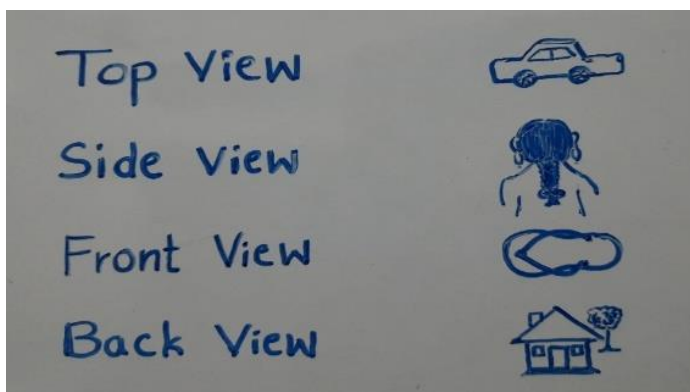 Top View
Side View
Front View
Back View